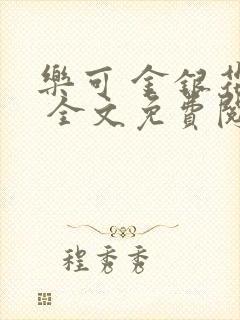 樂可 金銀花
全文免費閱
程秀秀